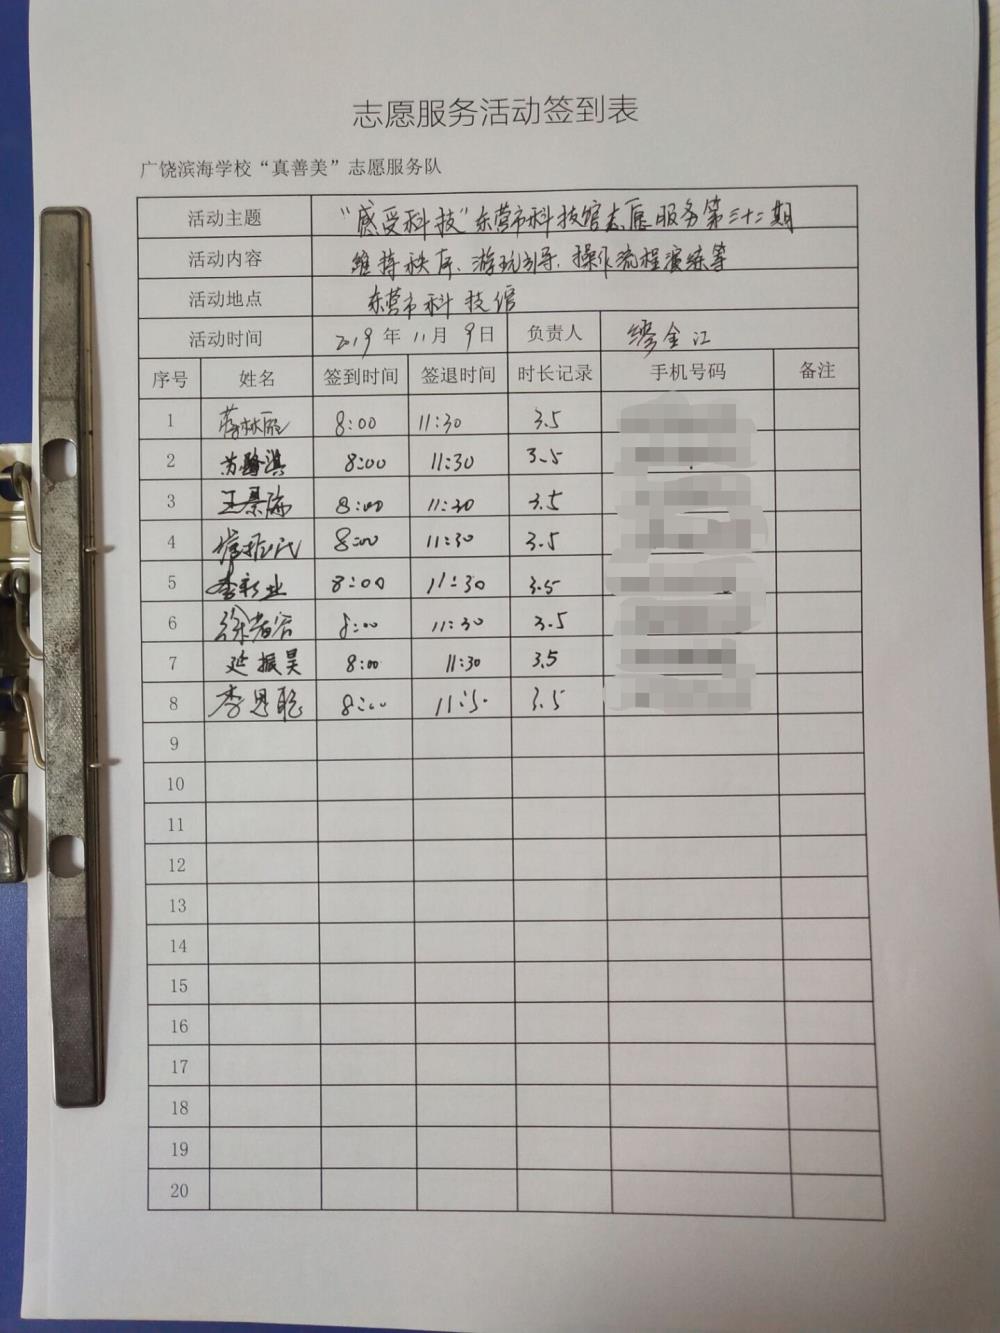 志愿服务活动签到表
广饶滨海学校“真善美”志愿服务队
活动主题 “感受科技”东营市科技馆志愿服务第三十二期
活动内容 维持秩序、游玩引导、操作流程演练等
活动地点 东营市科技馆
活动时间 2019年11月9日 负责人 缪金江
序号 姓名 签到时间 签退时间 时长记录 手机号码 备注
1 8:00 11:30 3.5
2 8:00 11:30 3.5
3 王景海 8:00 11:30 3.5
4 8:00 11:30 3.5
5 8:00 11:30 3.5
6 8:00 11:30 3.5
7 延振昊 8:00 11:30 3.5
8 李思聪 8:00 11:30 3.5
9
10
11
12
13
14
15
16
17
18
19
20